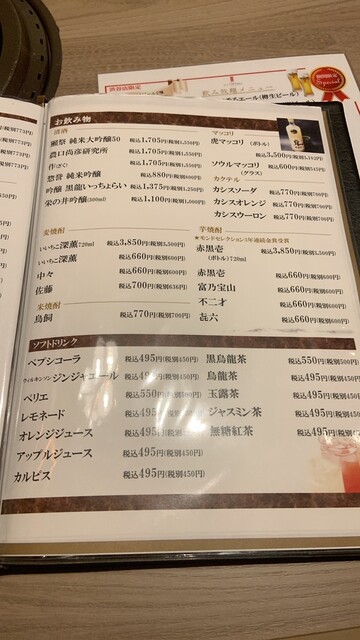 渋谷店限定
飲み放題メニュー
お飲み物
清酒
獺祭 純米大吟醸50 税込1,705円(税別1,550円)
農口尚彦研究所 税込1,705円(税別1,550円)
作(ざく) 税込1,705円(税別1,550円)
惣誉 純米吟醸 税込880円(税別800円)
吟醸 黒龍いっちょらい 税込1,375円(税別1,250円)
栄の井吟醸(300ml) 税込1,100円(税別1,000円)
マッコリ
虎マッコリ (ボトル)
税込3,500円(税別3,182円)
ソウルマッコリ 税込600円(税別546円)
(グラス)
カクテル
カシスソーダ 税込770円(税別700円)
カシスオレンジ 税込770円(税別700円)
カシスウーロン 税込770円(税別700円)
麦焼酎
いいちこ深薫(720ml) 税込3,850円(税別3,500円)
いいちこ深薫 税込660円(税別600円)
中々 税込660円(税別600円)
佐藤 税込700円(税別636円)
米焼酎
鳥飼 税込770円(税別700円)
芋焼酎
★モンドセレクション3年連続金賞受賞
赤黒壱 税込3,850円(税別3,500円)
(ボトル)720ml
赤黒壱 税込660円(税別600円)
富乃宝山 税込660円(税別600円)
不二才 税込660円(税別600円)
㐂六 税込660円(税別600円)
ソフトドリンク
ペプシコーラ 税込495円(税別450円)
ウィルキンソン ジンジャエール 税込495円(税別450円)
ペリエ 税込550円(税別500円)
レモネード 税込495円(税別450円)
オレンジジュース 税込495円(税別450円)
アップルジュース 税込495円(税別450円)
カルピス 税込495円(税別450円)
黒烏龍茶 税込550円(税別500円)
烏龍茶 税込495円(税別450円)
玉露茶 税込495円(税別450
ジャスミン茶 税込495円(税別450
無糖紅茶 税込495円(税別450